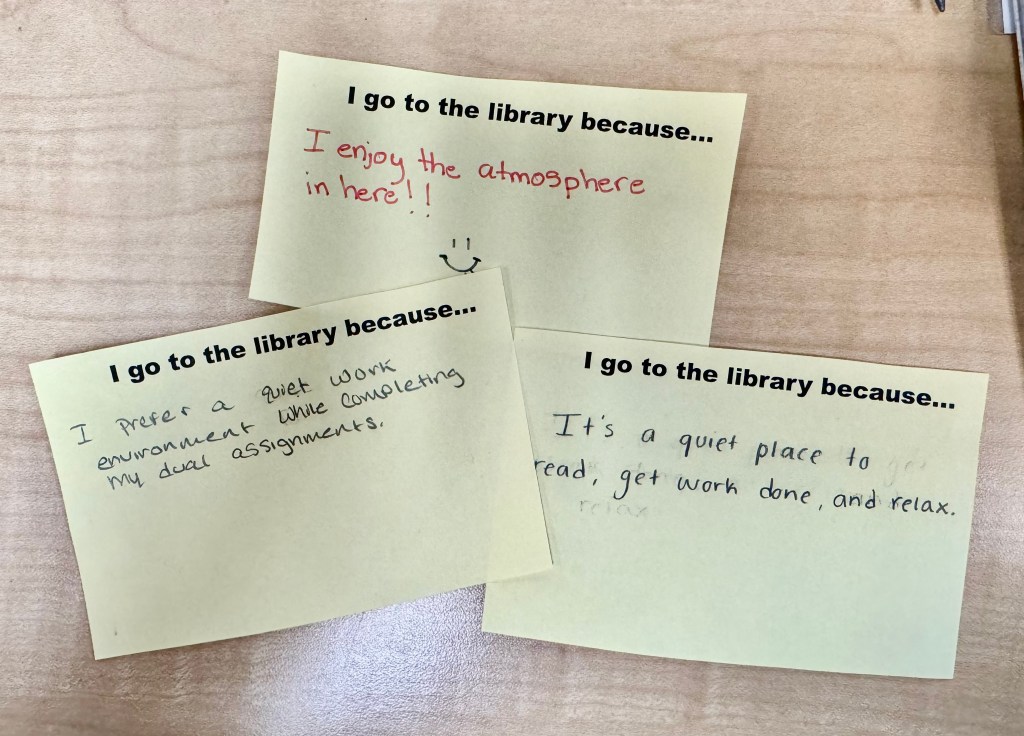 I go to the library because...
I enjoy the atmosphere
in here!!
I go to the library because...
I prefer a quiet work
environment while completing
my dual assignments.
I go to the library because...
It's a quiet place to
read, get work done, and relax.
relax